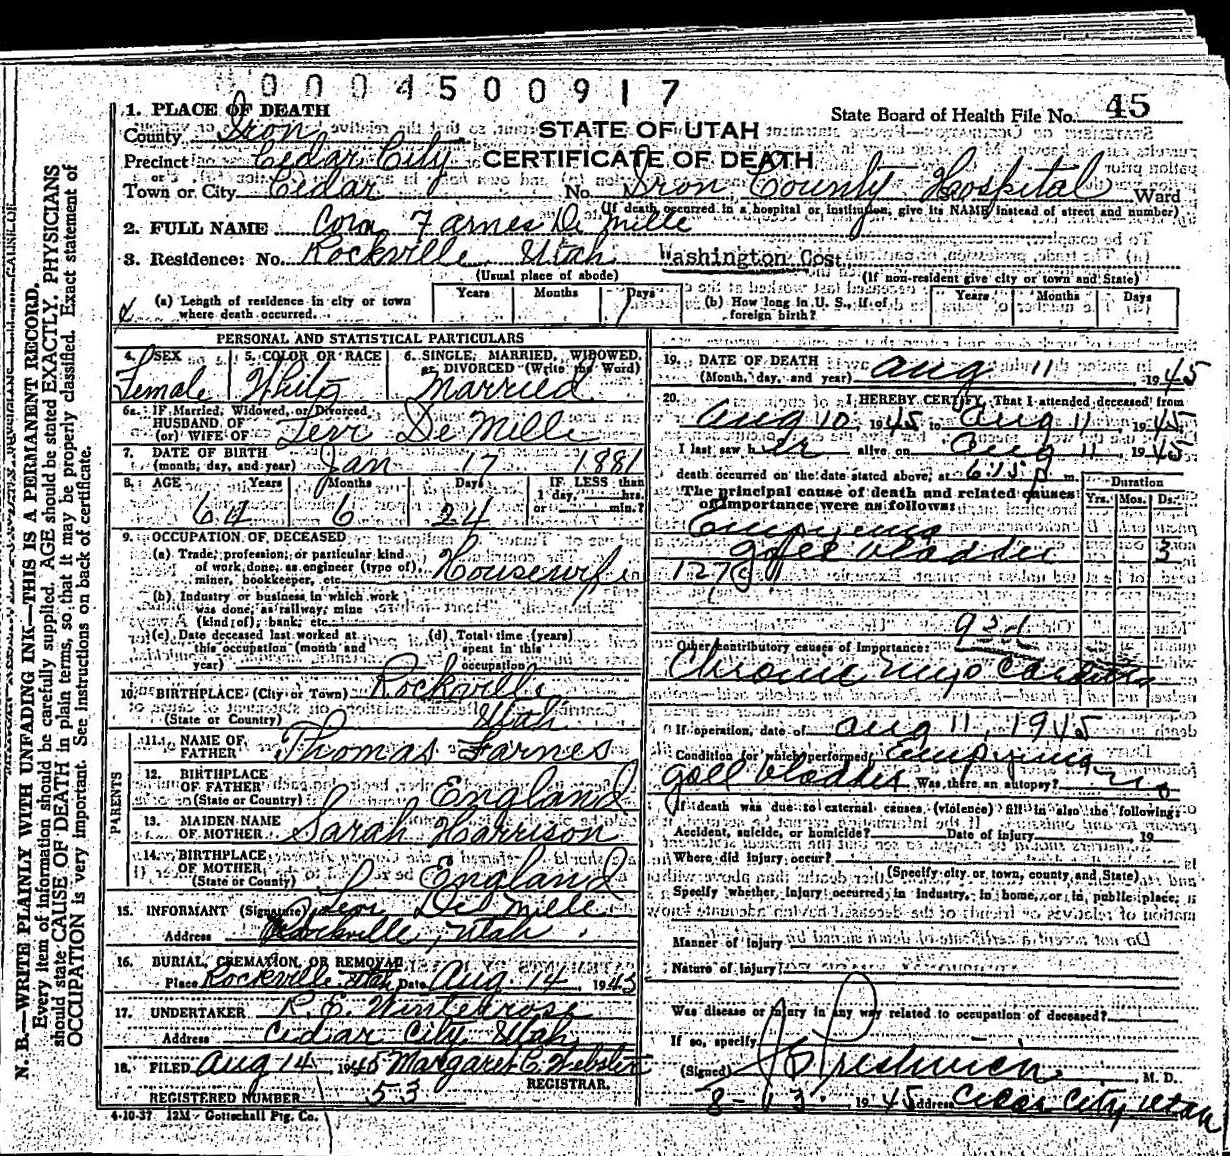 0004500917
1. PLACE OF DEATH
State Board of Health File No. 45
County Iron
STATE OF UTAH
Precinct Cedar City
CERTIFICATE OF DEATH
or
Town or City Cedar No. Iron County Hospital Ward
(If death occurred in a hospital or institution, give its NAME instead of street and number)
2. FULL NAME Cora Farnes De Mille
3. Residence: No. Rockville, Utah Washington Cost.
(Usual place of abode) (If non-resident give city or town and State)
(a) Length of residence in city or town where death occurred Years Months 1 Days (b) How long in U. S., if of foreign birth? Years Months Days
PERSONAL AND STATISTICAL PARTICULARS
4. SEX 5. COLOR OR RACE 6. SINGLE, MARRIED, WIDOWED, or DIVORCED (Write the Word)
Female White Married
6a. IF Married, Widowed, or Divorced
HUSBAND OF
(or) WIFE OF Levi De Mille
7. DATE OF BIRTH
(month, day, and year) Jan 17 1881
8. AGE Years Months Days IF LESS than
1 day, hrs.
or min.?
64 6 24
9. OCCUPATION OF DECEASED
(a) Trade, profession, or particular kind
of work done, as engineer (type of),
miner, bookkeeper, etc. Housewife
(b) Industry or business in which work
was done, as railway, mine
(kind of), bank, etc.
(c) Date deceased last worked at this occupation (month and year) (d) Total time (years) spent in this occupation
10. BIRTHPLACE (City or Town) Rockville
(State or Country) Utah
PARENTS
11. NAME OF
FATHER Thomas Farnes
12. BIRTHPLACE
OF FATHER
(State or Country) England
13. MAIDEN NAME
OF MOTHER Sarah Harrison
14. BIRTHPLACE
OF MOTHER
(State or County) England
15. INFORMANT (Signature) Levi De Mille
Address Rockville, Utah
16. BURIAL, CREMATION, OR REMOVAL
Place Rockville Utah Date Aug. 14 1945
17. UNDERTAKER R. E. Winterrose
Address Cedar City, Utah
18. FILED Aug 14 1945 Margaret C. Webster
REGISTRAR.
REGISTERED NUMBER 53
4-10-37 12M - Gottschall Ptg. Co.
19. DATE OF DEATH
(Month, day, and year) Aug 11 1945
20. I HEREBY CERTIFY, That I attended deceased from
Aug 10, 1945 to Aug 11 1945
I last saw her alive on Aug 11 1945
death occurred on the date stated above, at 6:15 P m.
The principal cause of death and related causes
of importance were as follows:
Duration
Yrs. Mos. Ds.
Empyema
gall bladder 3
127
93d
Other contributory causes of Importance:
Chronic myocarditis
If operation, date of Aug 11, 1945
Condition for which performed Empyema
gall bladder Was there an autopsy? no
If death was due to external causes (violence) fill in also the following:
Accident, suicide, or homicide? Date of injury 19
Where did injury occur?
(Specify city or town, county and State)
Specify whether injury occurred in industry, in home, or in public place:
Manner of injury
Nature of injury
Was disease or injury in any way related to occupation of deceased?
If so, specify
(Signed) M. D.
8-13- 1945 Address Cedar City, Utah
N. B.—WRITE PLAINLY WITH UNFADING INK—THIS IS A PERMANENT RECORD.
Every item of information should be carefully supplied. AGE should be stated EXACTLY. PHYSICIANS
should state CAUSE OF DEATH in plain terms, so that it may be properly classified. Exact statement of
OCCUPATION is very important. See instructions on back of certificate.